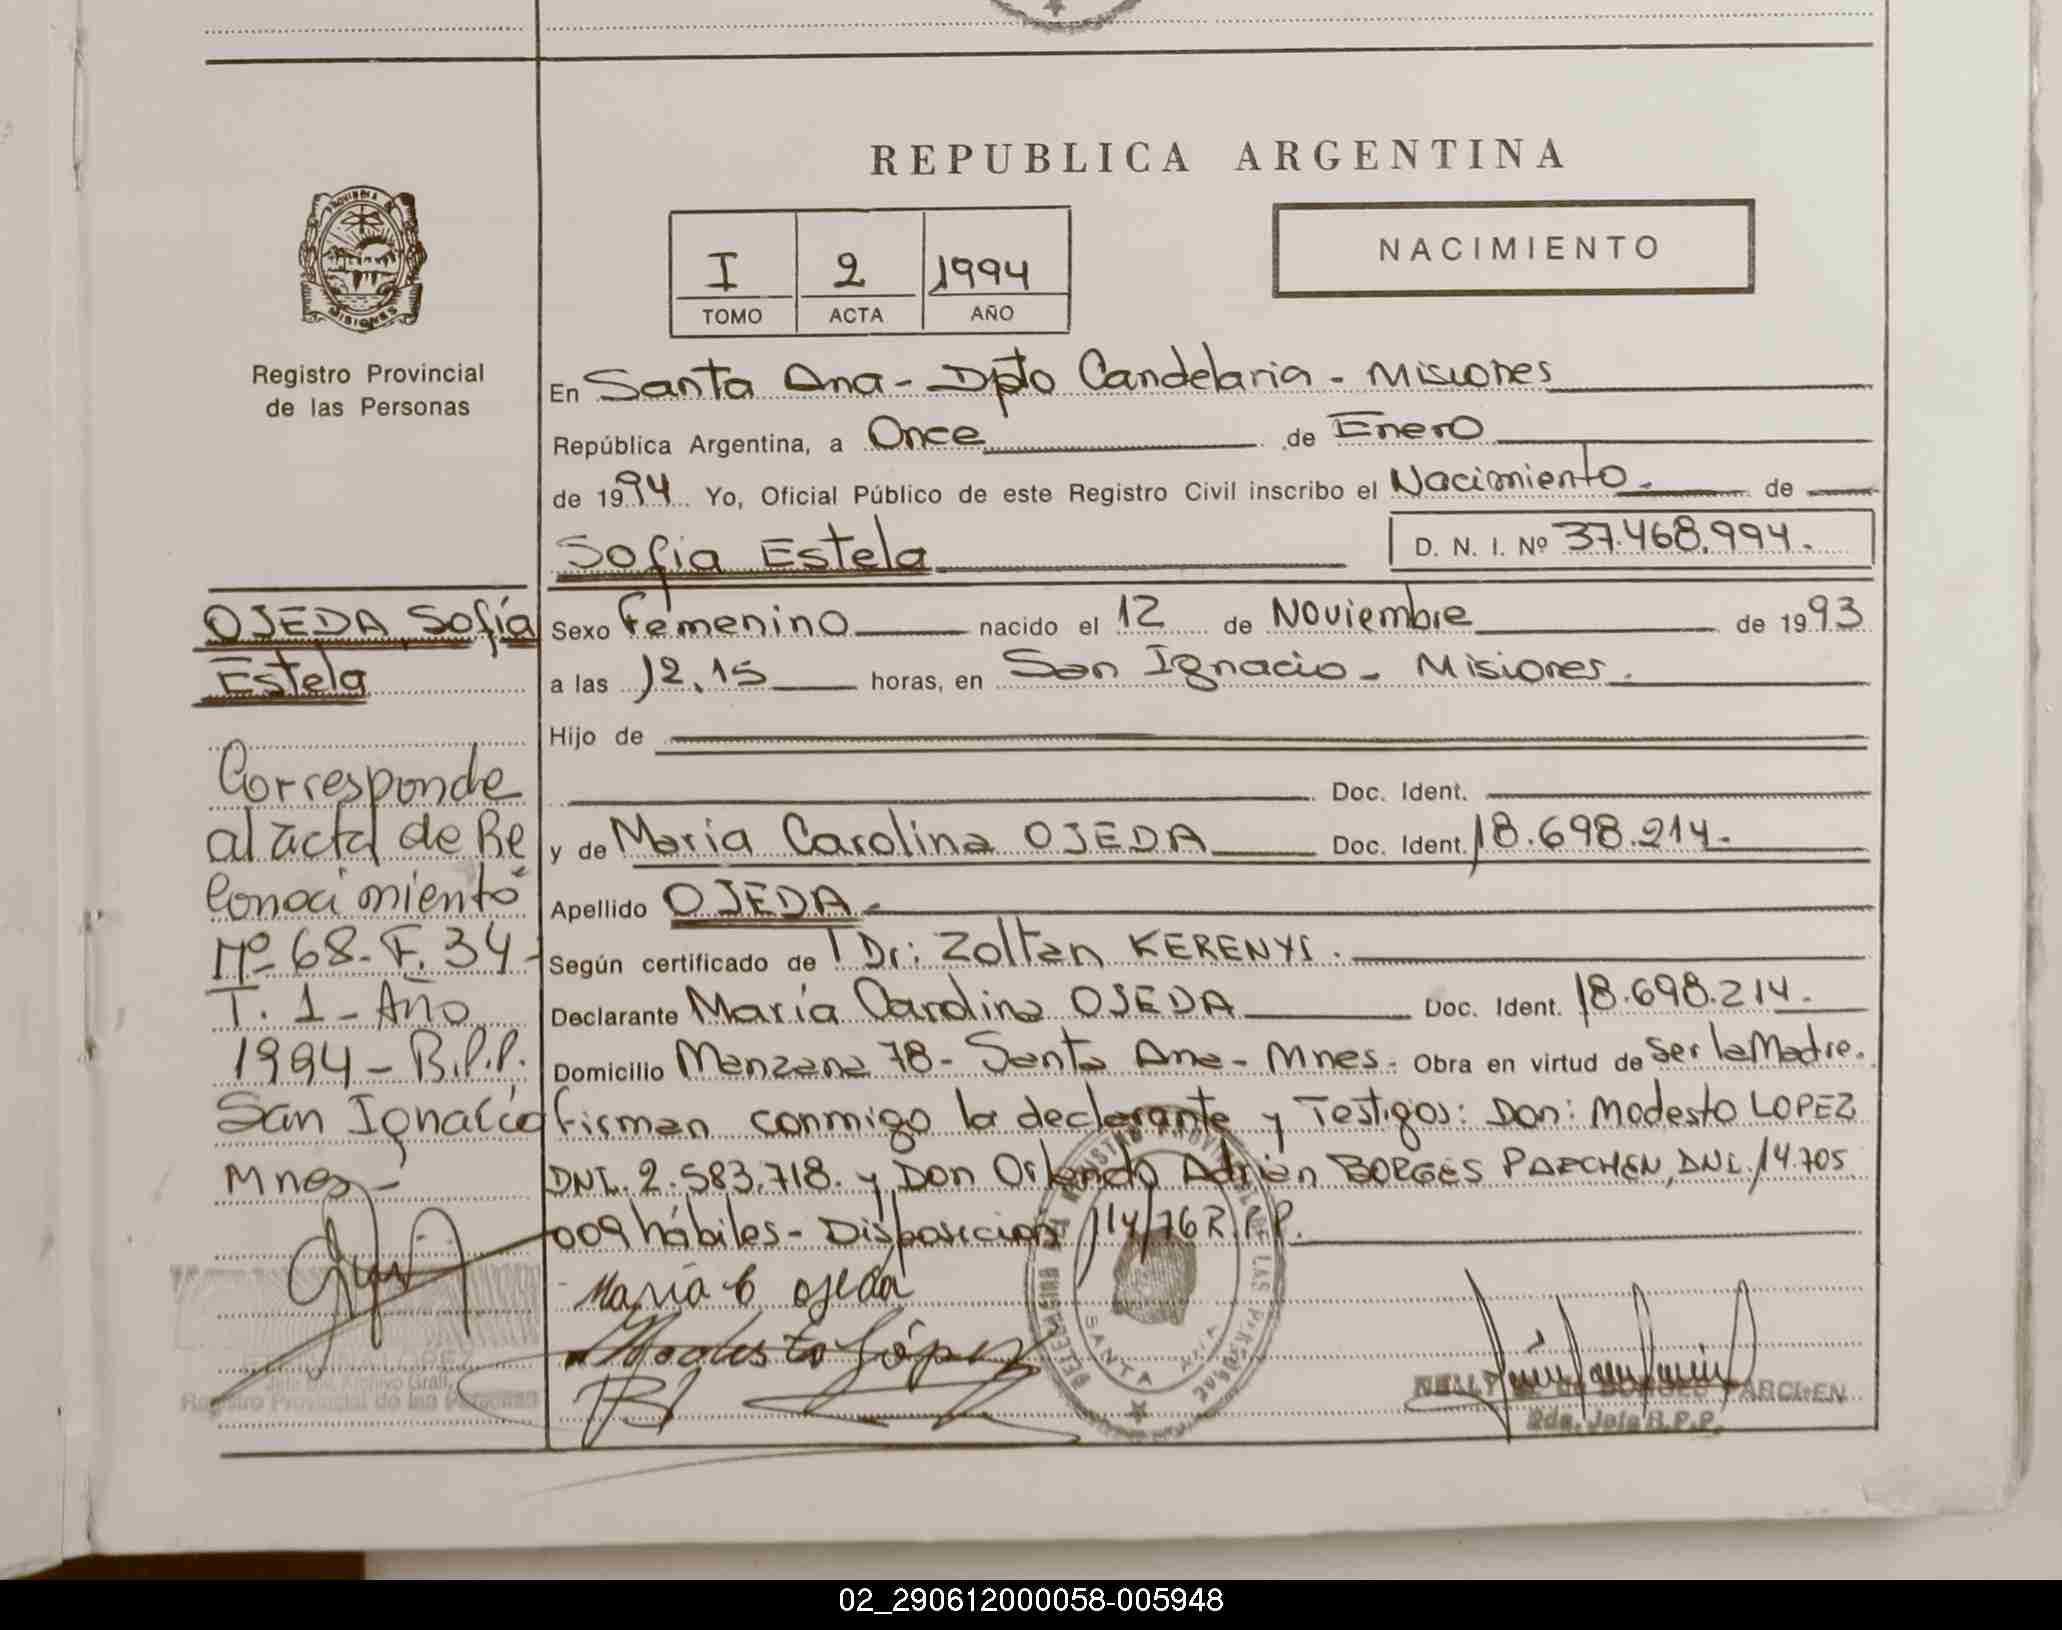 REPUBLICA ARGENTINA
I 2 1994
TOMO ACTA AÑO
NACIMIENTO
PROVINCIA DE
MISIONES
Registro Provincial
de las Personas
En Santa Ana - Dpto Candelaria - Misiones
República Argentina, a Once de Enero
de 1994 Yo, Oficial Público de este Registro Civil inscribo el Nacimiento. de
Sofia Estela
D. N. I. Nº 37.468.994.
OJEDA, Sofía
Estela
Sexo Femenino nacido el 12 de Noviembre de 1993
a las 12.15 horas, en San Ignacio - Misiones.
Hijo de
Doc. Ident.
y de Maria Carolina OJEDA Doc. Ident. 18.698.214.
Apellido OJEDA.
Según certificado de Dr: Zoltan KERENYI.
Declarante María Carolina OJEDA Doc. Ident. 18.698.214.
Domicilio Manzana 78 - Santa Ana - Mnes. Obra en virtud de ser la Madre.
firman conmigo la declarante y Testigos: Don: Modesto LOPEZ
DNI. 2.583.718. y Don Orlando Adrián BORGES PARCHEN, DNI. 14.705
009 hábiles - Disposicion 114/76 R.P.P.
Corresponde
al acta de Re
conocimiento
Nº 68 - F. 34 -
T. 1 - Año
1994 - R.P.P.
San Ignacio
Mnes -
Maria C Ojeda
Modesto López
SANTA ANA
NELLY DE BORGES PARCHEN
2da. Jefa R.P.P.
Jefe Div. Archivo Gral.
Registro Provincial de las Personas
02_290612000058-005948